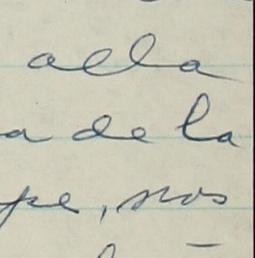 alla
a de la
pe, nos